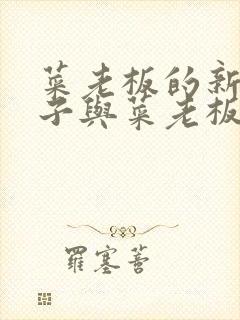 菜老板的新
子與菜老板
羅塞菩